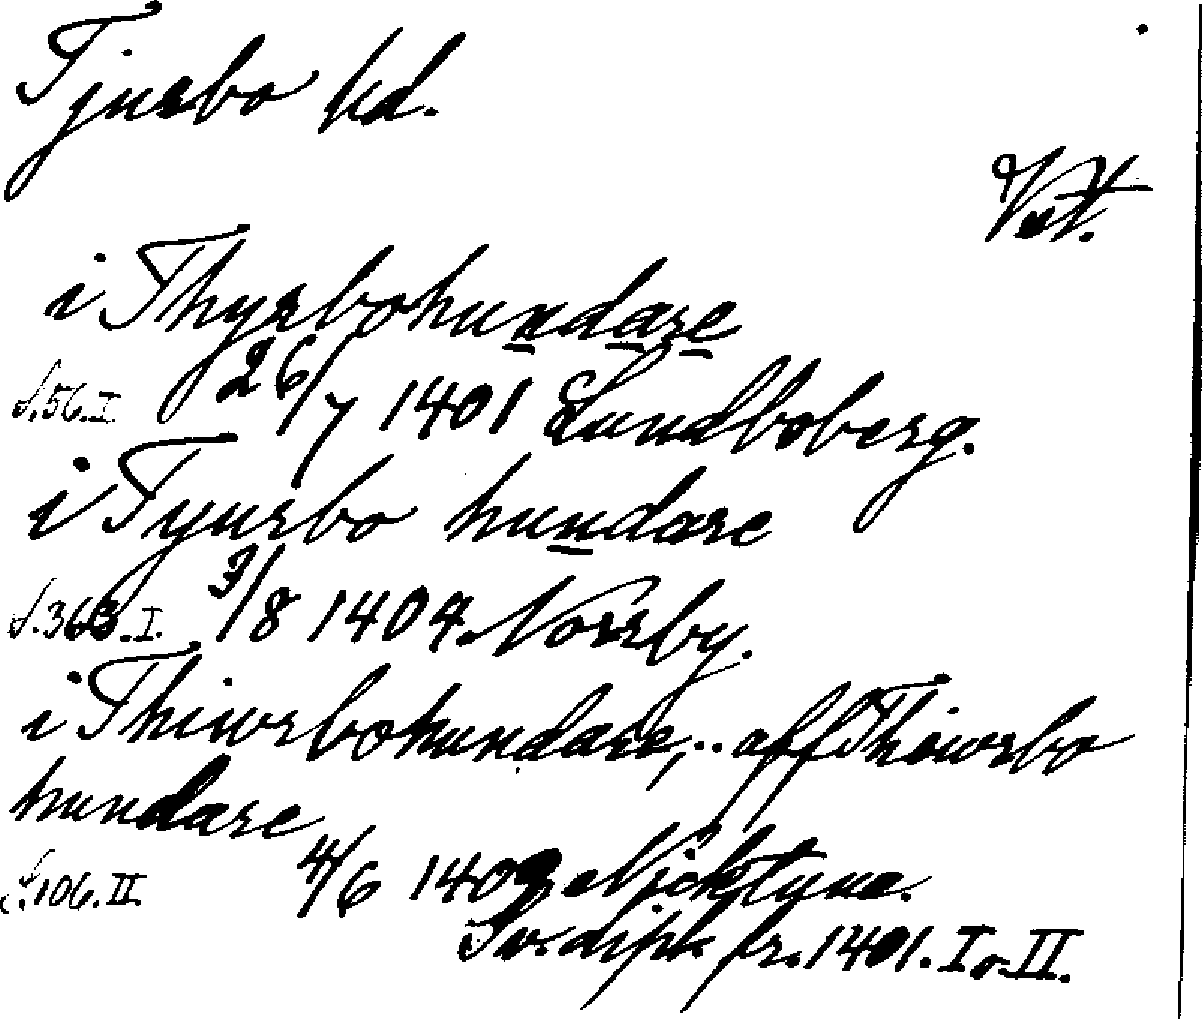 Tjurbo hd.
Vstm.
i Thyrbohundare
S. 56. I. 26/7 1401 Lundboberg.
i Tyurbo hundare
S. 363. I. 3/8 1404. Norrby.
i Thiwrbohundare, .. aff Thiwrbo
hundare
S. 106. II. 4/6 1409 Nicktuna.
Sv. dipl. fr. 1401. I o. II.